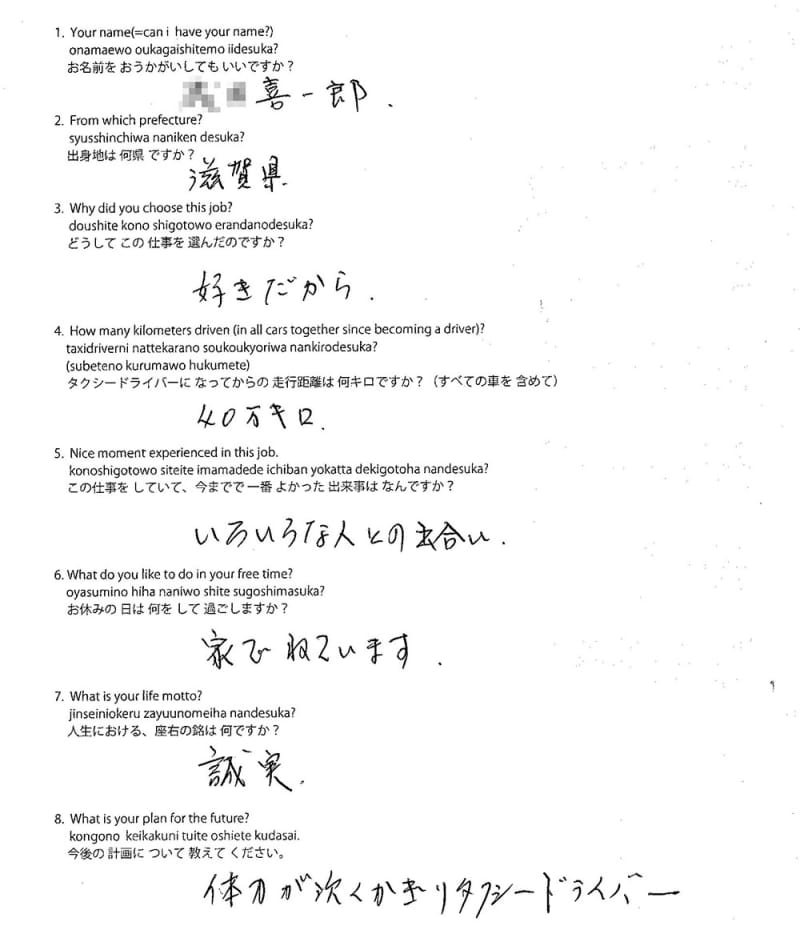 1. Your name(=can i have your name?)
onamaewo oukagaishitemo iidesuka?
お名前を おうかがいしても いいですか？
喜一郎.
2. From which prefecture?
syusshinchiwa naniken desuka?
出身地は 何県 ですか？
滋賀県.
3. Why did you choose this job?
doushite kono shigotowo erandanodesuka?
どうして この 仕事を 選んだのですか？
好きだから.
4. How many kilometers driven (in all cars together since becoming a driver)?
taxidriverni nattekarano soukoukyoriwa nankirodesuka?
(subeteno kurumawo hukumete)
タクシードライバーに なってからの 走行距離は 何キロですか？（すべての車を 含めて）
40万キロ.
5. Nice moment experienced in this job.
konoshigotowo siteite imamadede ichiban yokatta dekigotoha nandesuka?
この仕事を していて、今までで 一番 よかった 出来事は なんですか？
いろいろな人との出合い.
6. What do you like to do in your free time?
oyasumino hiha naniwo shite sugoshimasuka?
お休みの 日は 何を して 過ごしますか？
家でねています.
7. What is your life motto?
jinseiniokeru zayuunomeiha nandesuka?
人生における、座右の銘は 何ですか？
誠実.
8. What is your plan for the future?
kongono keikakuni tuite oshiete kudasai.
今後の 計画に ついて 教えて ください。
体力が次くかぎりタクシードライバー